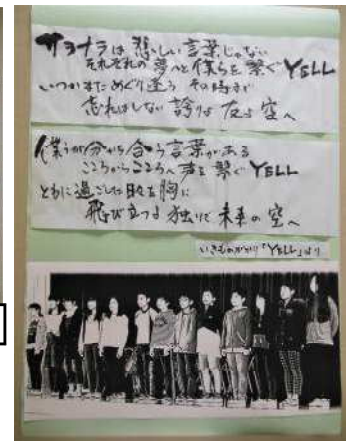 サヨナラは悲しい言葉じゃない
それぞれの夢へと僕らを繋ぐ YELL
いつかまためぐり逢う その時まで
忘れはしない 誇りよ 友よ 空へ
僕らが分かち合う言葉がある
こころからこころへ 声を繋ぐ YELL
ともに過ごした日々を胸に
飛び立つよ 独りで 未来の空へ
いきものがかり「YELL」より